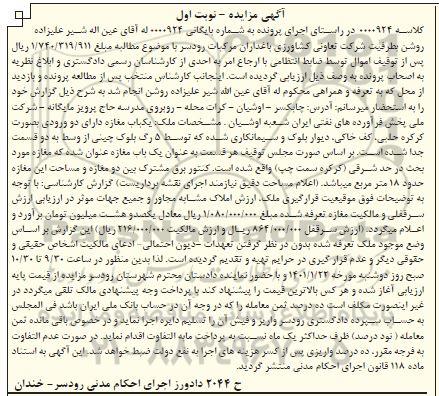 آگهی مزایده - نوبت اول
کلاسه ۰۰۰۰۹۲۴ در راستای اجرای پرونده به شماره بایگانی ۰۰۰۰۹۲۴ له آقای عین اله شیر علیزاده
روشن بطرفیت شرکت تعاونی کشاورزی باغداران مرکبات رودسر با موضوع مطالبه مبلغ ۱/۷۴۰/۳۱۹/۹۱۱ ریال
پس از توقیف اموال توسط ضابط انتظامی با ارجاع امر به احدی از کارشناسان رسمی دادگستری و ابلاغ نظریه
به اصحاب پرونده به وصف ذیل ارزیابی گردیده است. اینجانب کارشناس منتخب پس از مطالعه پرونده و بازدید
از محل که به تعرفه و همراهی محکوم له آقای عین الله شیر علیزاده روشن انجام شد به شرح ذیل گزارش خود
را به استحضار میرسانم: آدرس: چابکسر - اوشیان - کرات محله - روبروی مدرسه حاج پرویز مایگانه - شرکت
ملی پخش فرآورده های نفتی ایران شعبه اوشیان . مشخصات ملک: یکباب مغازه دارای دو ورودی بصورت
کرکره حلبی، کف خاکی، دیوار بلوک و سیمانکاری شده که توسط ۵ رگ بلوک چینی از وسط به دو قسمت
جدا شده است. بر اساس صورت مجلس توقیف هر قسمت به عنوان یک باب مغازه عنوان شده که مغازه مورد
بحث در حد شرقی (کرکره سمت چپ) واقع شده است. کنتور برق مشترک بین دو مغازه و مساحت این مغازه
حدود ۱۸ متر مربع میباشد. (اعلام مساحت دقیق نیازمند اجرای نقشه برداریست) گزارش کارشناسی: با توجه
به توضیحات فوق موقعیت قرارگیری ملک، ارزش املاک مشابه مجاور و جمیع جهات موثر در ارزیابی ارزش
سرقفلی و مالکیت مغازه تعرفه شده مبلغ ۱/۰۸۰/۰۰۰/۰۰۰ ریال معادل یکصدو هشت میلیون تومان برآورد و
اعلام میگردد. (ارزش سرقفل ۸۶۴/۰۰۰/۰۰۰ ریال و ارزش مالکیت ۲۱۶/۰۰۰/۰۰۰ ریال) این گزارش بر اساس
وضع موجود ملک تعرفه شده بدون در نظر گرفتن تعهدات - دیون احتمالی - ادعای مالکیت اشخاص حقیقی و
حقوقی دیگر و عدم قرار گیری در حرایم تهیه و تقدیم گردیده است. لذا بدین منظور در ساعت ۹/۳۰ تا ۱۰/۳۰
صبح روز دوشنبه مورخه ۱۴۰۱/۱/۲۲ و با حضور نماینده دادستان محترم شهرستان رودسر مزایده از قیمت پایه
ارزیابی آغاز شده و هر کس بالاترین قیمت را پیشنهاد کند با پرداخت وجه پیشنهادی مالک تلقی میگردد در
غیر اینصورت مکلف است ده درصد ثمن معامله را که در وجه آن در حساب بانک ملی ایران باشد فی المجلس
به حساب سپرده دادگستری رودسر واریز و فیش آن را تسلیم دایره اجرا نماید و در خصوص باقی مانده ثمن
معامله ( نود درصد) ظرف حداکثر یک ماه نسبت به پرداخت مابه التفاوت اقدام نماید. در صورت عدم التفاوت
به فرجه مقرر، ده درصد واریزی پس از کسر هزینه های اجرا به نفع دولت ضبط خواهد شد. این آگهی به استناد
ماده ۱۱۸ قانون اجرای احکام مدنی منتشر گردید.
ح ۲۰۴۴ دادورز اجرای احکام مدنی رودسر- خندان